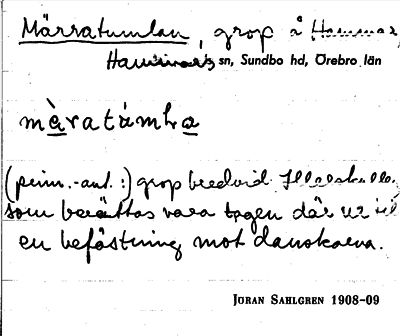 Märratumlan, grop å Hammar,
Hammars sn, Sundbo hd, Örebro län
màratúmḷa
(prim.-ant.:) grop bredvid
som berättas vara tagen där ur till
en befästning mot danskarna.
JÖRAN SAHLGREN 1908-09